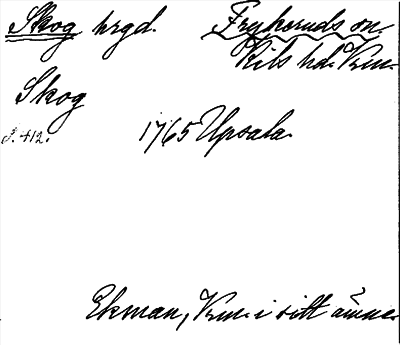 Skog hrgd. Frykeruds sn.
Kils hd. Vrm.
Skog
S. 412. 1765 Upsala.
Ekman, Vrm. i sitt ämne